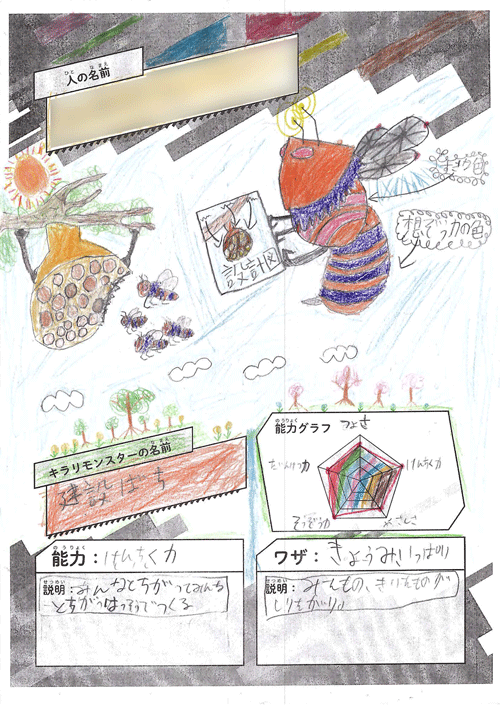 人の名前
ひと なまえ
想ぞう力の色
設計図
能力グラフ
のうりょく
つよさ
けんちく力
やさしさ
そうぞう力
だんけつ力
キラリモンスターの名前
なまえ
建設ばち
能力:けんちく力
のうりょく
説明:みんなとちがってみんな
せつめい
とちがうはっそうでつくる
ワザ:きょうみいっぱい
説明:みたもの、きいたものが
せつめい
しりたがり。